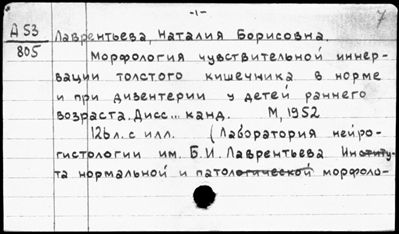 -1-
7
А 53
805
Лаврентьева, Наталия Борисовна.
Морфология чувствительной иннер-
вации толстого кишечника в норме
и при дизентерии у детей раннего
возраста. Дисс... канд. М, 1952
126 л. с илл. (Лаборатория нейро-
гистологии им. Б.И. Лаврентьева Институ-
та нормальной и патологической морфоло-